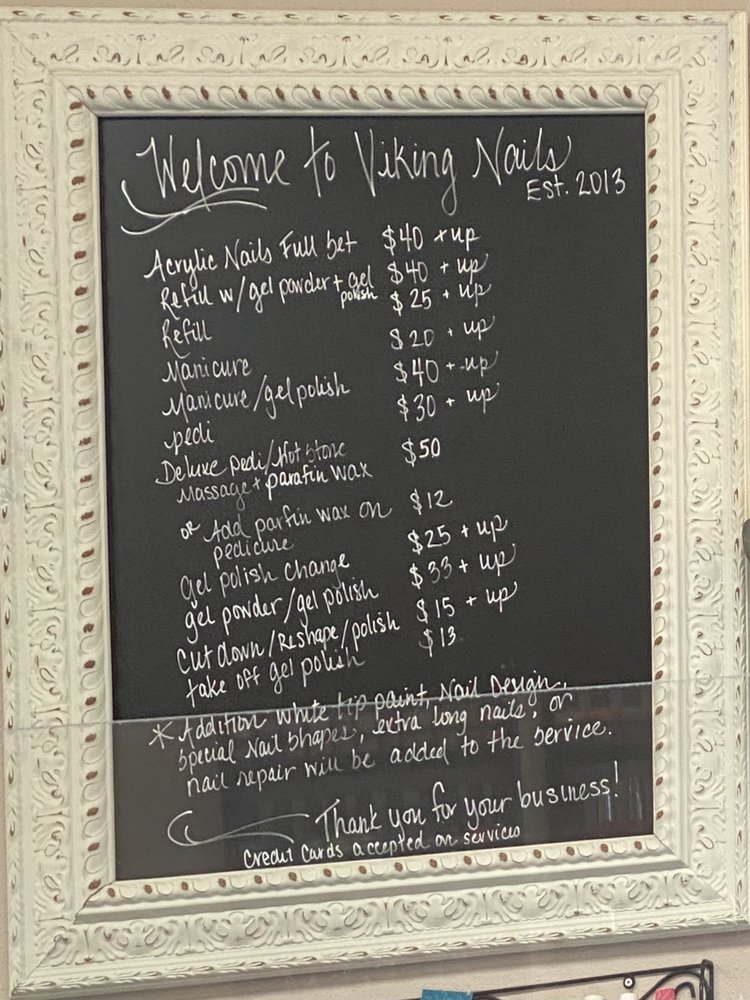 Welcome to Viking Nails
Est. 2013
Acrylic Nails Full Set $40 + up
Refill w/gel powder + gel polish $40 + up
Refill $25 + up
Manicure $20 + up
Manicure/gel polish $40 + up
pedi $30 + up
Deluxe pedi/Hot Stone $50
Massage + parafin wax
or Add parfin wax on $12
pedicure
Gel polish change $25 + up
gel powder/gel polish $33 + up
Cut down/Reshape/polish $15 + up
take off gel polish $13
* Addition white tip paint, Nail Design,
Special Nail Shapes, extra long nails, or
nail repair will be added to the service.
Thank you for your business!
Credit Cards accepted on services